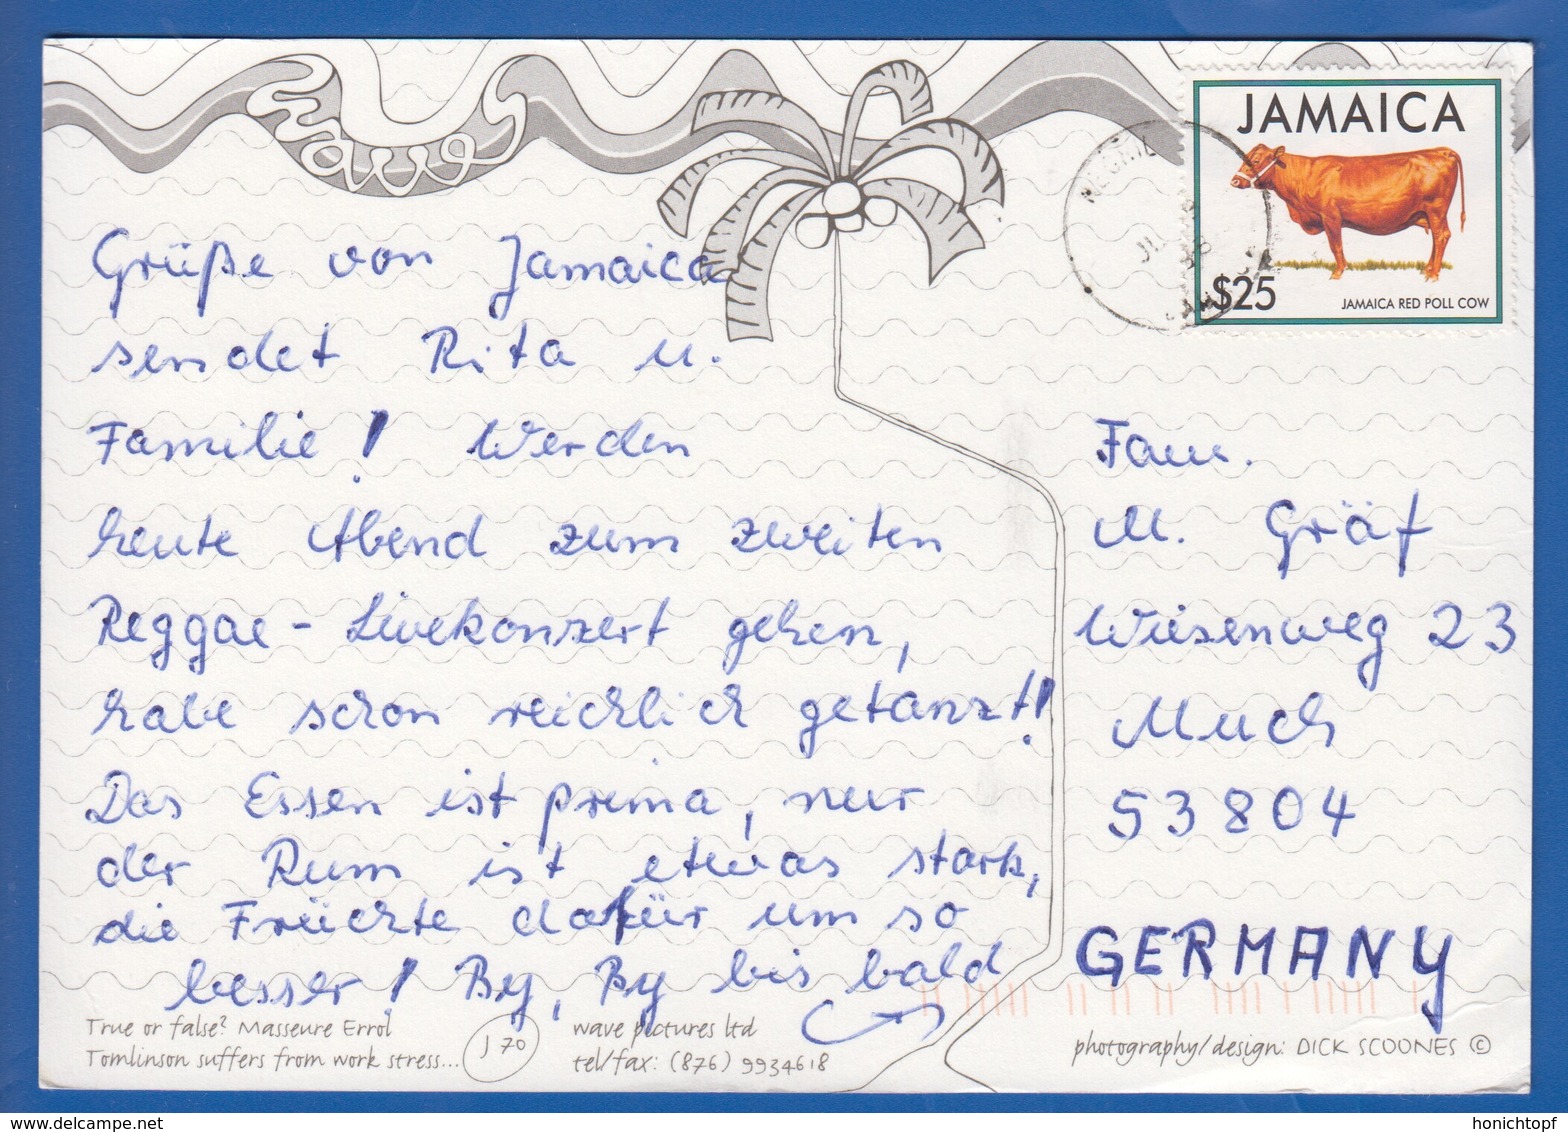 wave
JAMAICA
$25
JAMAICA RED POLL COW
Grüße von Jamaica
sendet Rita u.
Familie! Werden
heute Abend zum zweiten
Reggae - Livekonzert gehen,
habe schon reichlich getanzt!!
Das Essen ist prima, nur
der Rum ist etwas stark,
die Früchte dafür um so
besser! By, By bis bald
Fam.
M. Gräf
Wiesenweg 23
Much
53804
GERMANY
True or false? Masseure Errol
Tomlinson suffers from work stress...
J 70
wave pictures ltd
tel/fax: (876) 9934618
photography/design: DICK SCOONES ©
www.delcampe.net
honichtopf